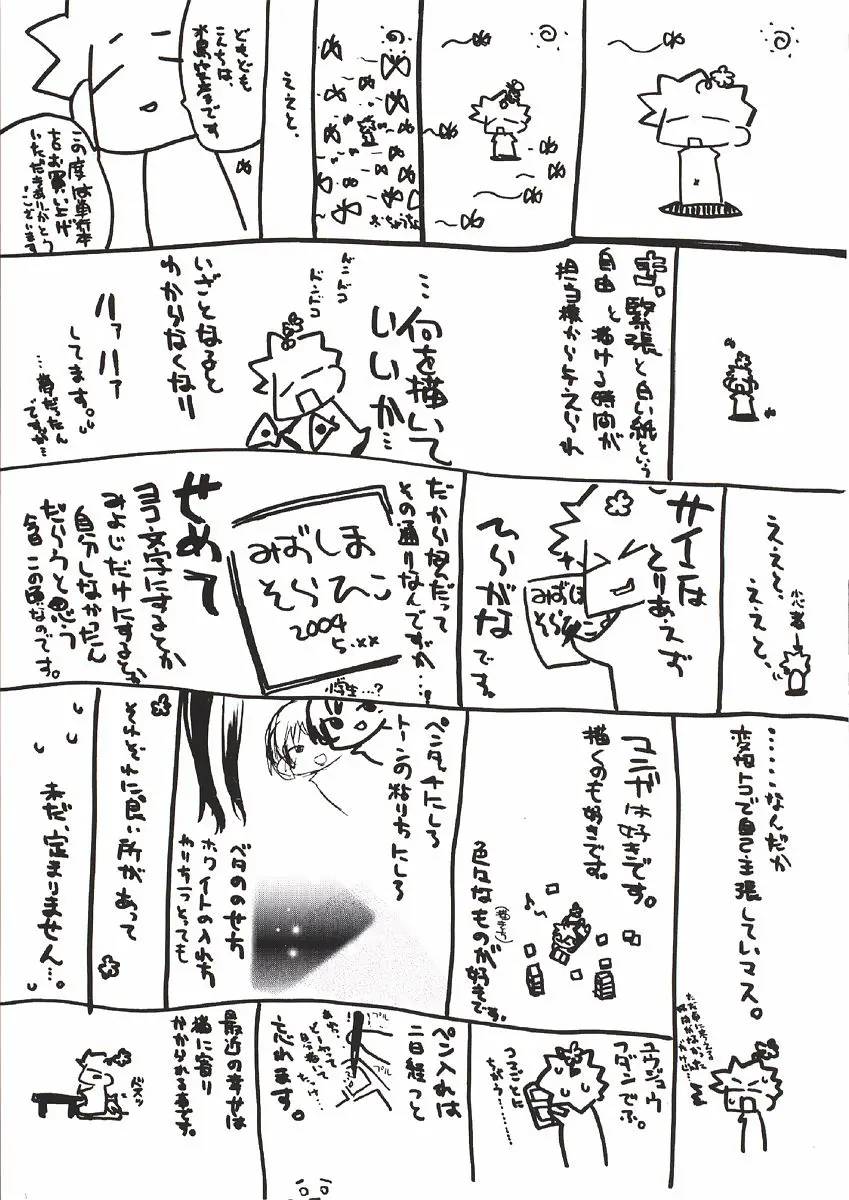 ええと、
どもども
こんちは、
水島空彦です。
この度は単行本
をお買い上げ
いただきありがとう
ございます
緊張と白い紙という
自由と描ける時間が
担当様から与えられ
…何を描いて
いいか…
ドンドコ
ドンドコ
いざとなると
わからなくなり
ハァハァ
してます。
…昔だったん
ですが…
ええと、
ええと、
小心者→
サインは
とりあえず
ひらがなです。
みずしま
そらひこ
だから何だって
その通りなんですが…。
みずしま
そらひこ
2004
5.××
小学生…?
せめて
ヨコ文字にするとか
みょじだけにするとか
自分しなかったん
だろうと思う
今日この頃なのです。
……なんだか
変なトコで自己主張していマス。
マンガは好きです。
描くのも好きです。
色々なものが好きです。
ペンタッチにしろ
トーンの貼り方にしろ
ベタののせ方
ホワイトの入れ方
おりちつとっても
それぞれに良い所があって
未だ、定まりません…。
ユウジュウ
フダンでぶ。
ペン入れは
二日経つと
忘れます。
プル
プル
最近の幸せは
猫に寄り
かかられる事です。